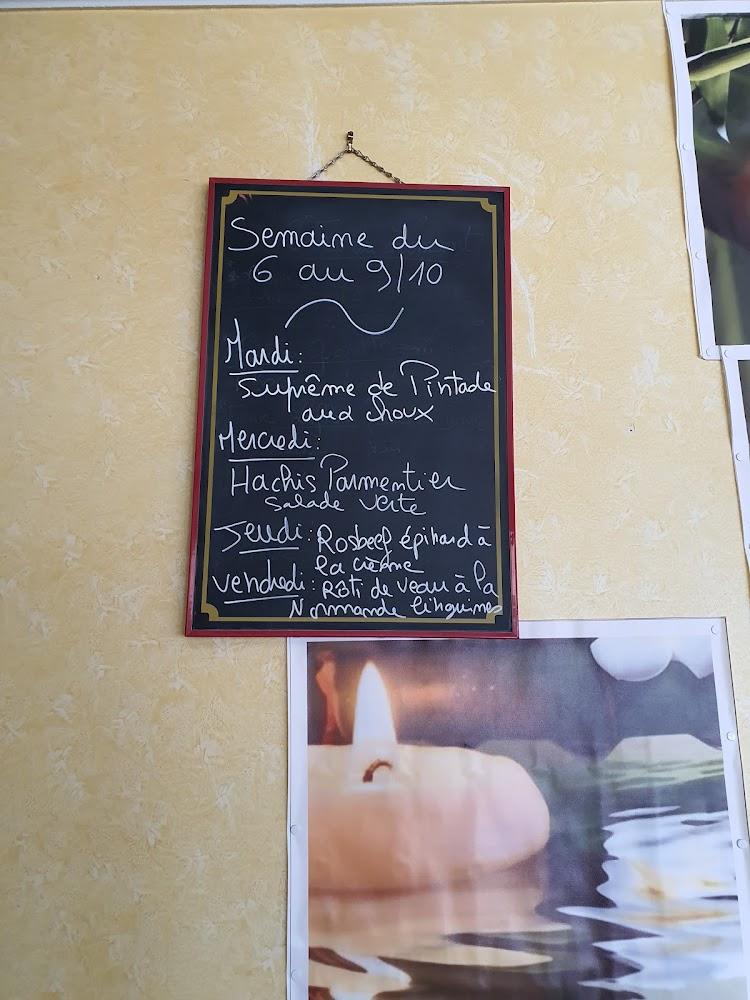 Semaine du
6 au 9/10
Mardi:
Suprême de Pintade
aux choux
Mercredi:
Hachis Parmentier
Salade verte
Jeudi: Rosbeef épinard à
la crème
Vendredi: Rôti de veau à la
Normande linguines